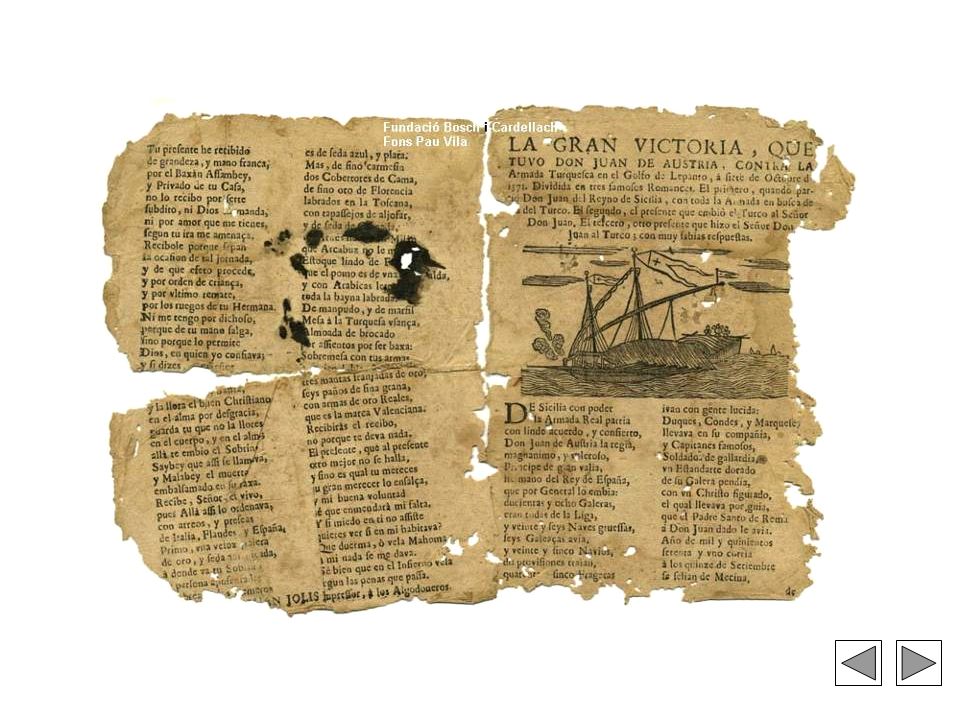 Fundació Bosch i Cardellach
Fons Pau Vila
Tu presente he recibido
de grandeza, y mano franca,
por el Baxán Assambey,
y Privado de tu Casa,
no lo recibo por serte
subdito, ni Dios manda,
ni por amor que me tienes,
segun tu ira me amenaça.
Recibole porque sepan
la ocasion de tal jornada,
y de que efeto procede,
y por orden de criança,
y por vltimo remate,
por los ruegos de tu Hermana.
Ni me tengo por dichoso,
porque de tu mano salga,
sino porque lo permite
Dios, en quien yo confiava;
y si dizes
y la llora el buen Christiano
en el alma por desgracia,
guarda tu que no la llores
en el cuerpo, y en el alma
allà te embio el Sobrino
Saybey que assi se llamava,
y Malabey el muerto
embalsamado en su caxa.
Recibe, Señor, el vivo,
pues Allà assi lo ordenava,
con arreos, y preseas
de Italia, Flandes y España,
Primo, vna veloz Galera
de oro, y seda
à donde va tu Sobrino
persona
es de seda azul, y plata.
Mas, de fino carmesin
dos Cobertores de Cama,
de fino oro de Florencia
labrados en la Toscana,
con rapassejos de aljofar,
y de seda
que Arcabuz no le
Estoque lindo de
que el pomo es de vna
y con Arabicas
toda la bayna labrada.
De manpudo, y de marfil
Mesa à la Turquesa vsança,
Almoada de brocado
por assientos por ser baxa:
Sobremesa con tus armas
tres mantas franjadas de oro,
seys paños de fina grana,
con armas de oro Reales,
que es la marca Valenciana.
Recibiràs el recibo,
no porque te deva nada.
El presente, que al presente
otro mejor no se halla,
y sino es qual tu mereces
tu gran merecer lo ensalça,
y mi buena voluntad
sè que enmendarà mi falta.
Y si miedo en ti no assiste
quieres ver si en mi habitava?
Que duerma, ò vela Mahoma
à mi nada se me dava.
Sè bien que en el Infierno vela
segun las penas que passa.
JOLIS Impressor, à los Algodoneros.
LA GRAN VICTORIA, QUE
TUVO DON JUAN DE AUSTRIA, CONTRA LA
Armada Turquesca en el Golfo de Lepanto, à siete de Octubre d
1571. Dividida en tres famosos Romances. El primero, quando par-
Don Juan del Reyno de Sicilia, con toda la Armada en busca de
del Turco. El segundo, el presente que embiò el Turco al Señor
Don Juan. El tercero, otro presente que hizo el Señor Don
Juan al Turco; con muy sabias respuestas.
DE Sicilia con poder
la Armada Real patria
con lindo acuerdo, y consierto,
Don Juan de Austria la regia,
magnanimo, y valeroso,
Principe de gran valia,
hermano del Rey de España,
que por General lo embia:
ducientas y ocho Galeras,
eran todas de la Liga,
y veinte y seys Naves gruessas,
seys Galeaças avia,
y veinte y sinco Navios,
de provisiones traian,
sinco Fragatas
ivan con gente lucida:
Duques, Condes, y Marqueses
llevava en su compañia,
y Capitanes famosos,
Soldados de gallardia,
vn Estandarte dorado
de su Galera pendia,
con vn Christo figurado,
el qual llevava por guia,
que el Padre Santo de Roma
à Don Juan dado le avia.
Año de mil y quinientos
setenta y vno corria
à los quinze de Setiembre
se selian de Mecina,
de